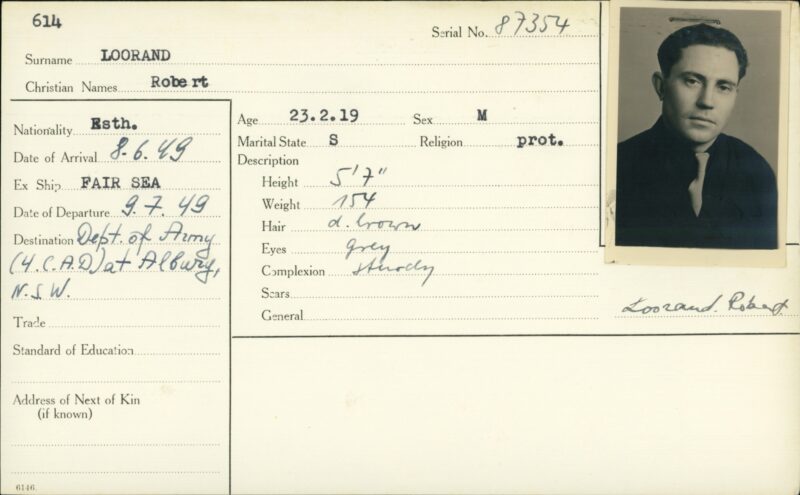 614
Serial No. 87354
Surname LOORAND
Christian Names Robert
Nationality Esth.
Date of Arrival 8.6.49
Ex Ship FAIR SEA
Date of Departure 9.7.49
Destination Dept. of Army
(4.C.A.D) at Albury,
N.S.W.
Trade
Standard of Education
Address of Next of Kin
(if known)
6146.
Age 23.2.19 Sex M
Marital State S Religion prot.
Description
Height 5'7"
Weight 154
Hair d. brown
Eyes grey
Complexion sturdy
Scars
General
Loorand. Robert